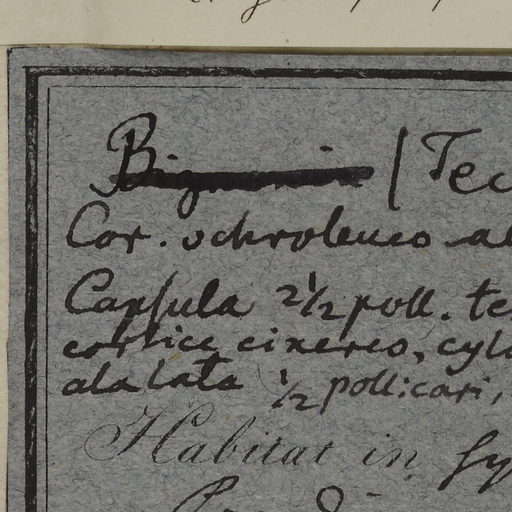 Bignonia / Tec
Cor. ochroleuco al
Capsula 2 1/2 poll. te
cortice cinereo, cyl
alalata 1/2 pollicari,
Habitat in sy